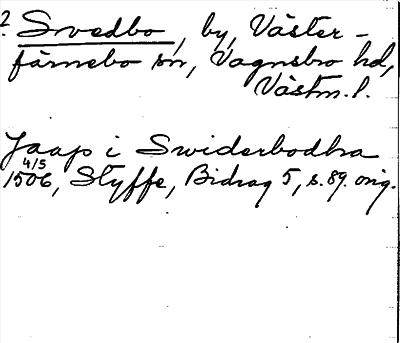 ? Svedbo, by, Väster-
färnebo sn, Vagnsbro hd,
Västm. l.
Jaap i Swiderbodha
4/5
1506, Styffe, Bidrag 5, s. 89. orig.